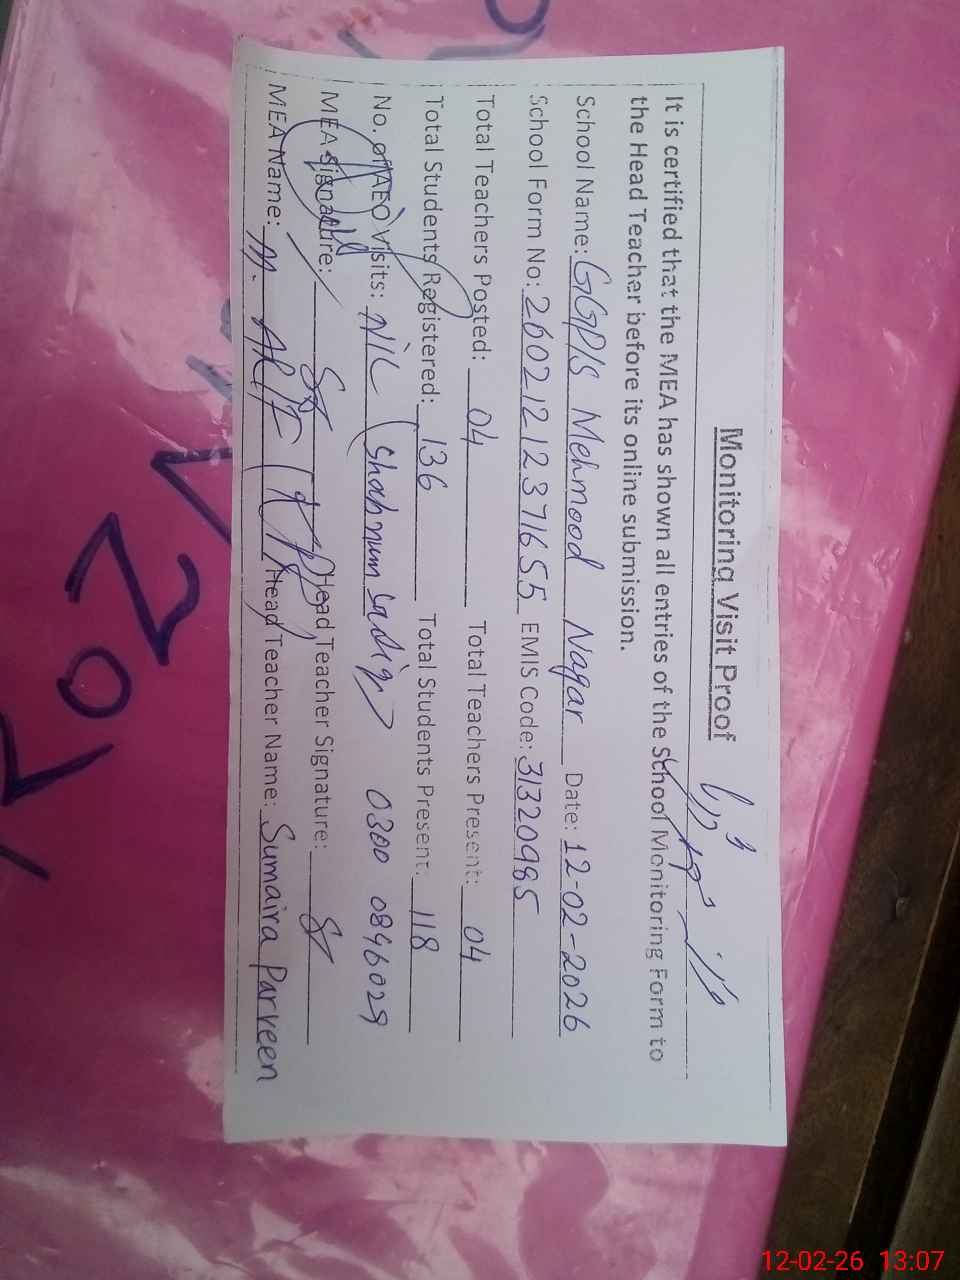 Monitoring Visit Proof
It is certified that the MEA has shown all entries of the School Monitoring Form to
the Head Teacher before its online submission.
School Name: GGP/S Mehmood Nagar Date: 12-02-2026
School Form No: 26021212371655 EMIS Code: 31320985
Total Teachers Posted: 04 Total Teachers Present: 04
Total Students Registered: 136 Total Students Present: 118
No. of AEO Visits: NIL (Shahnum Sadiq) 0300 0896029
MEA Signature: Head Teacher Signature:
MEA Name: M. Head Teacher Name: Sumaira Parveen
12-02-26 13:07